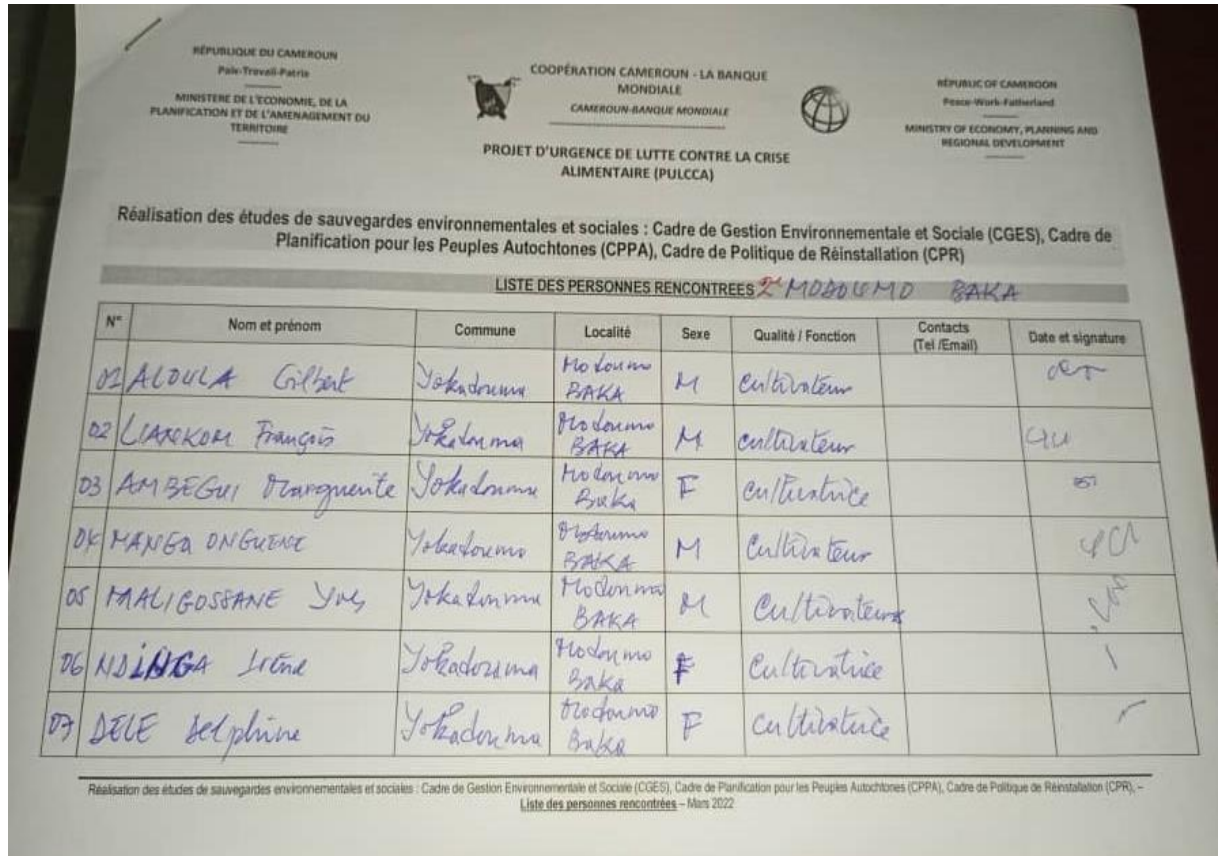 RÉPUBLIQUE DU CAMEROUN
Paix-Travail-Patrie
MINISTERE DE L'ECONOMIE, DE LA
PLANIFICATION ET DE L'AMENAGEMENT DU
TERRITOIRE
COOPÉRATION CAMEROUN - LA BANQUE
MONDIALE
CAMEROUN-BANQUE MONDIALE
PROJET D'URGENCE DE LUTTE CONTRE LA CRISE
ALIMENTAIRE (PULCCA)
RÉPUBLIC OF CAMEROON
Peace-Work-Fatherland
MINISTRY OF ECONOMY, PLANNING AND
REGIONAL DEVELOPMENT
Réalisation des études de sauvegardes environnementales et sociales : Cadre de Gestion Environnementale et Sociale (CGES), Cadre de
Planification pour les Peuples Autochtones (CPPA), Cadre de Politique de Réinstallation (CPR)
LISTE DES PERSONNES RENCONTREES MODOUMO BAKA
N° Nom et prénom Commune Localité Sexe Qualité / Fonction Contacts (Tel /Email) Date et signature
01 ALOULA Gilbert Yokadouma Modoumo BAKA M Cultivateur
02 François Yokadouma Modoumo BAKA M cultivateur
03 AMBEGUI Marguerite Yokadouma Modoumo Baka F cultivatrice
04 MANGA ONGUENE Yokadouma Modoumo BAKA M Cultivateur
05 MALIGOSSANE Yves Yokadouma Modoumo BAKA M Cultivateur
06 NDINGA Irène Yokadouma Modoumo Baka F Cultivatrice
07 DELE Delphine Yokadouma Modoumo Baka F cultivatrice
Réalisation des études de sauvegardes environnementales et sociales : Cadre de Gestion Environnementale et Sociale (CGES), Cadre de Planification pour les Peuples Autochtones (CPPA), Cadre de Politique de Réinstallation (CPR), –
Liste des personnes rencontrées – Mars 2022